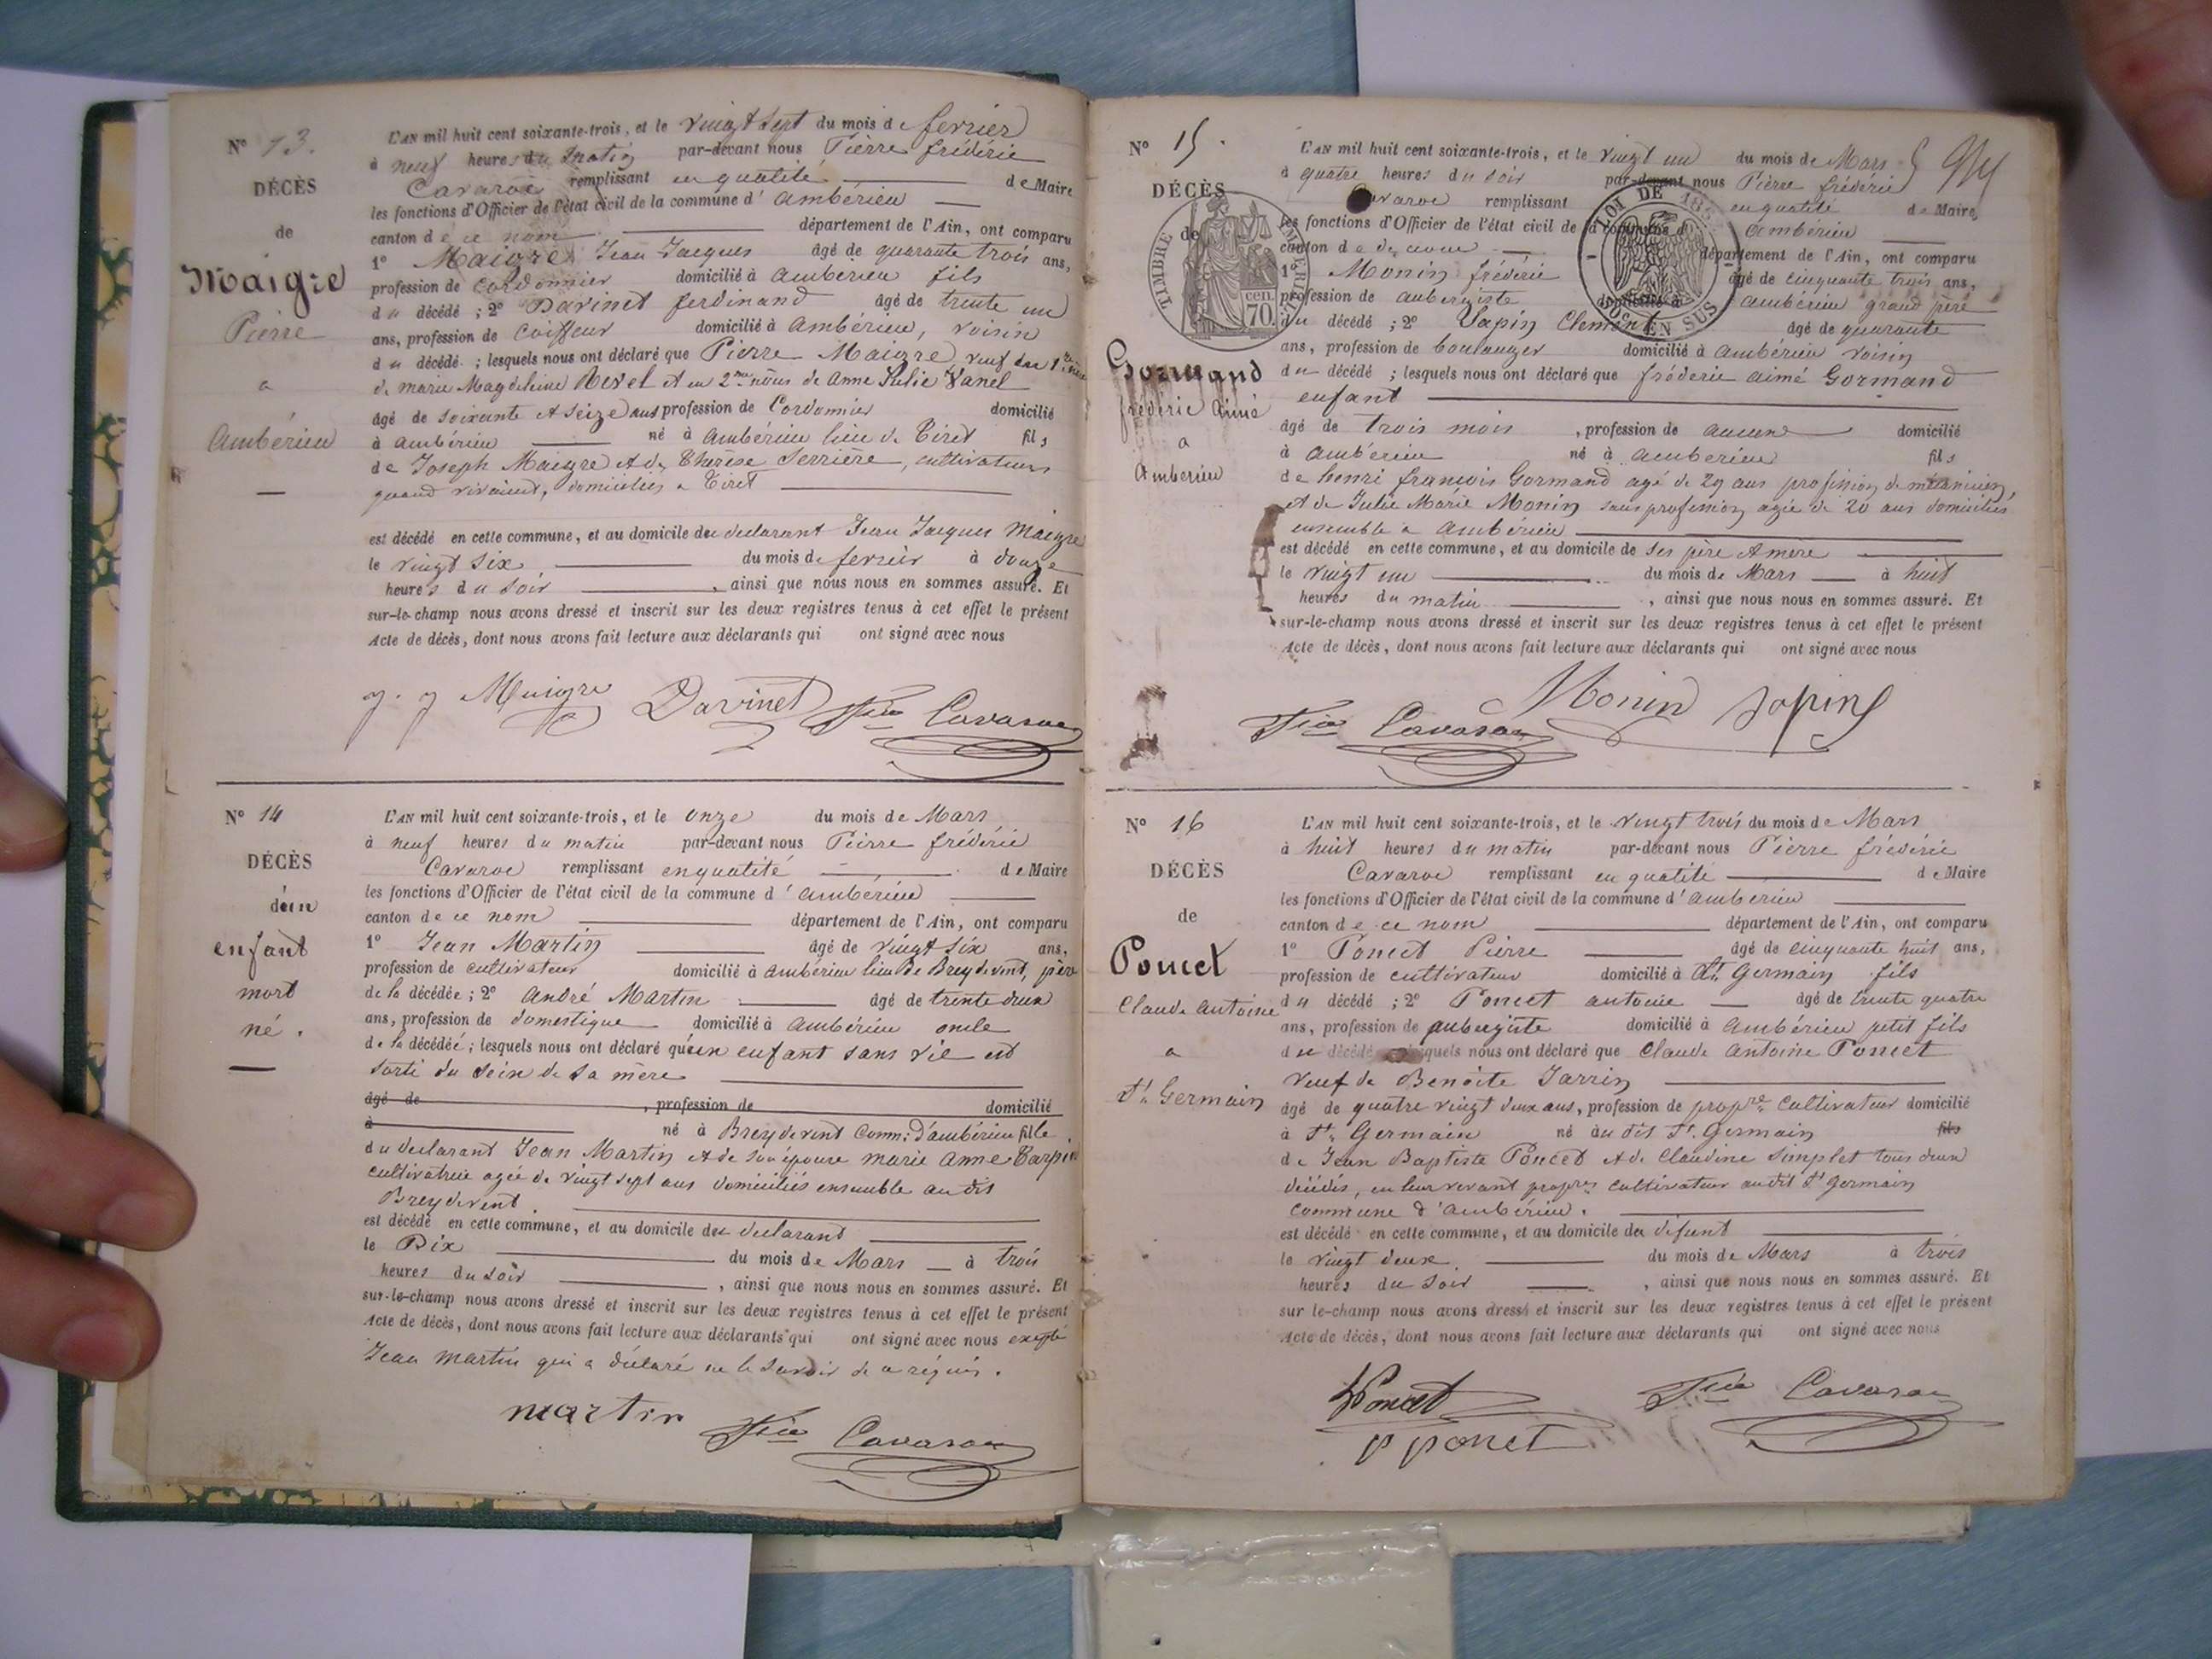 N° 13.
DÉCÈS
de
Maigre
Pierre
a
Ambérieu
L'AN mil huit cent soixante-trois, et le vingt sept du mois de fevrier
à neuf heures du matin par-devant nous Pierre frédéric
Cavaroc remplissant en qualité de Maire
les fonctions d'Officier de l'état civil de la commune d'ambérieu
canton de ce nom département de l'Ain, ont comparu
1° Maigre Jean Jacques âgé de quarante trois ans,
profession de Cordonnier domicilié à ambérieu fils
du décédé ; 2° Davinet ferdinand âgé de trente un
ans, profession de Coiffeur domicilié à ambérieu, voisin
du décédé ; lesquels nous ont déclaré que Pierre Maigre veuf en 1res
de marie Magdeleine Revel et en 2mes nôces de Anne Julie Vanel
âgé de soixante et seize ans profession de Cordonnier domicilié
à ambérieu né à ambérieu lieu de Tiret fils
de Joseph Maigre et de Thérèse Serrière, cultivateurs
quand vivaient, domiciliés a Tiret
est décédé en cette commune, et au domicile du declarant Jean Jacques Maigre
le vingt six du mois de fevrier à douze
heures du soir, ainsi que nous nous en sommes assuré. Et
sur-le-champ nous avons dressé et inscrit sur les deux registres tenus à cet effet le présent
Acte de décès, dont nous avons fait lecture aux déclarants qui ont signé avec nous
j. j Maigre Davinet Fric Cavaroc
N° 14
DÉCÈS
d'un
enfant
mort
né.
L'AN mil huit cent soixante-trois, et le onze du mois de Mars
à neuf heures du matin par-devant nous Pierre frédéric
Cavaroc remplissant en qualité de Maire
les fonctions d'Officier de l'état civil de la commune d'ambérieu
canton de ce nom département de l'Ain, ont comparu
1° Jean Martin âgé de vingt six ans,
profession de cultivateur domicilié à ambérieu lieu de Breydevent, père
de la décédée ; 2° andré Martin âgé de trente deux
ans, profession de domestique domicilié à ambérieu oncle
de la décédée ; lesquels nous ont déclaré qu'un enfant sans vie est
sorti du sein de sa mère
âgé de , profession de domicilié
à né à Breydevent Comm: d'ambérieu fille
du declarant Jean Martin et de son épouse marie anne Carpin
cultivatrice agée de vingt sept ans domiciliés ensemble au dit
Breydevent.
est décédé en cette commune, et au domicile du declarant
le Dix du mois de Mars à trois
heures du soir, ainsi que nous nous en sommes assuré. Et
sur-le-champ nous avons dressé et inscrit sur les deux registres tenus à cet effet le présent
Acte de décès, dont nous avons fait lecture aux déclarants qui ont signé avec nous excepté
Jean martin qui a déclaré ne le savoir de ce réquis.
martin Fric Cavaroc
N° 15.
DÉCÈS
de
TIMBRE IMPÉRIAL
70 cen.
Gormand
frédéric aimé
a
Ambérieu
L'AN mil huit cent soixante-trois, et le vingt un du mois de Mars
à quatre heures du soir par-devant nous Pierre frédéric
Cavaroc remplissant en qualité de Maire
LOI DE
EN SUS
les fonctions d'Officier de l'état civil de la commune d'Ambérieu
canton de département de l'Ain, ont comparu
1° Monin fréderic âgé de cinquante trois ans,
profession de aubergiste domicilié à ambérieu grand père
du décédé ; 2° Sapin Clement âgé de quarante
ans, profession de boulanger domicilié à ambérieu voisin
du décédé ; lesquels nous ont déclaré que fréderic aimé Gormand
enfant
âgé de trois mois, profession de aucune domicilié
à ambérieu né à ambérieu fils
de henri françois Gormand agé de 29 ans profission de mécanicien,
et de Julie Marie Monin sans profession agée de 20 ans domiciliés
ensemble a ambérieu
est décédé en cette commune, et au domicile de ses père et mere
le vingt un du mois de Mars à huit
heures du matin, ainsi que nous nous en sommes assuré. Et
sur-le-champ nous avons dressé et inscrit sur les deux registres tenus à cet effet le présent
Acte de décès, dont nous avons fait lecture aux déclarants qui ont signé avec nous
Monin Sapin
Fric Cavaroc
N° 16
DÉCÈS
de
Poncet
Claude Antoine
a
St Germain
L'AN mil huit cent soixante-trois, et le vingt trois du mois de Mars
à huit heures du matin par-devant nous Pierre fréderic
Cavaroc remplissant en qualité de Maire
les fonctions d'Officier de l'état civil de la commune d'ambérieu
canton de ce nom département de l'Ain, ont comparu
1° Poncet Pierre âgé de cinquante huit ans,
profession de cultivateur domicilié à St Germain fils
du décédé ; 2° Poncet antoine âgé de trente quatre
ans, profession de aubergiste domicilié à ambérieu petit fils
du décédé lesquels nous ont déclaré que Claude Antoine Poncet
veuf de Benoite Jarrin
âgé de quatre vingt deux ans, profession de propre Cultivateur domicilié
à St Germain né au dit St Germain fils
de Jean Baptiste Poncet et de Claudine Simplet tous deux
décédés, en leur vivant propres cultivateurs au dit St Germain
commune d'ambérieu.
est décédé en cette commune, et au domicile du défunt
le vingt deux du mois de Mars à trois
heures du soir, ainsi que nous nous en sommes assuré. Et
sur le-champ nous avons dressé et inscrit sur les deux registres tenus à cet effet le présent
Acte de décès, dont nous avons fait lecture aux déclarants qui ont signé avec nous
Poncet Fric Cavaroc
p poncet